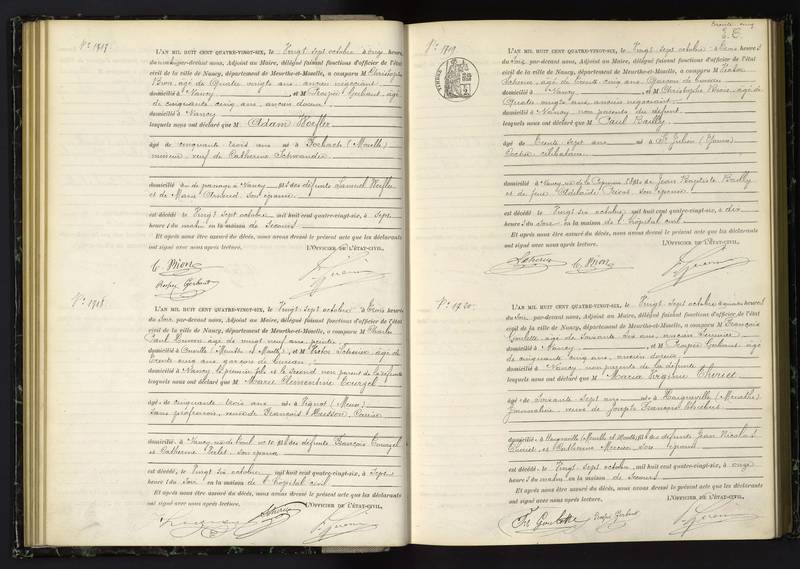 N° 1717.
L'AN MIL HUIT CENT QUATRE-VINGT-SIX, le Vingt sept octobre à onze heures
du matin par-devant nous, Adjoint au Maire, délégué faisant fonctions d'officier de l'état
civil de la ville de Nancy, département de Meurthe-et-Moselle, a comparu M Christophe
Bion, âgé de Quatre vingts ans, ancien négociant
domicilié à Nancy, et M Prosper Gerbaut âgé
de cinquante cinq ans, ancien
domicilié à Nancy
lesquels nous ont déclaré que M Adam
âgé de cinquante trois ans né à Forbach (Moselle)
mineur, veuf de Catherine Schwander
domicilié de passage à Nancy fils des défunts Samuel
et de Marie son épouse
est décédé le Vingt sept octobre mil huit cent quatre-vingt-six, à sept
heures du matin en la maison de Secours
Et après nous être assuré du décès, nous avons dressé le présent acte que les déclarants
ont signé avec nous après lecture. L'OFFICIER DE L'ÉTAT-CIVIL,
C. Bion
Prosper Gerbaut
N° 1718
L'AN MIL HUIT CENT QUATRE-VINGT-SIX, le Vingt sept octobre à trois heures
du soir, par-devant nous, Adjoint au Maire, délégué faisant fonctions d'officier de l'état
civil de la ville de Nancy, département de Meurthe-et-Moselle, a comparu M Charles
Paul âgé de vingt neuf ans, peintre
domicilié à (Meurthe et Moselle), et M Victor âgé de
trente cinq ans garçon de bureau
domicilié à Nancy le premier fils et le second non parent de la défunte
lesquels nous ont déclaré que M Marie Clémentine
âgée de cinquante trois ans née à Vignot (Meuse)
sans profession, veuve de François
domiciliée à Nancy, rue de fille des défunts François
et Catherine son épouse
est décédée, le Vingt six octobre mil huit cent quatre-vingt-six, à sept
heures du soir en la maison de l'hôpital civil
Et après nous être assuré du décès, nous avons dressé le présent acte que les déclarants
ont signé avec nous après lecture. L'OFFICIER DE L'ÉTAT-CIVIL,
N° 1719.
L'AN MIL HUIT CENT QUATRE-VINGT-SIX, le Vingt sept octobre à trois heures
du soir, par-devant nous, Adjoint au Maire, délégué faisant fonctions d'officier de l'état
civil de la ville de Nancy, département de Meurthe-et-Moselle, a comparu M Victor
âgé de trente cinq ans, garçon de bureau
domicilié à Nancy, et M Christophe Bion, âgé de
Quatre vingts ans, ancien négociant
domicilié à Nancy non parents du défunt
lesquels nous ont déclaré que M Paul Bailly
âgé de trente sept ans né à St Julien (Yonne)
célibataire
domicilié à Nancy, rue de fils de Jean Baptiste Bailly
et de feue Adélaïde son épouse
est décédé le Vingt six octobre mil huit cent quatre-vingt-six, à dix
heures du soir en la maison de l'hôpital civil
Et après nous être assuré du décès, nous avons dressé le présent acte que les déclarants
ont signé avec nous après lecture. L'OFFICIER DE L'ÉTAT-CIVIL,
C. Bion
N° 1720.
L'AN MIL HUIT CENT QUATRE-VINGT-SIX, le Vingt sept octobre à quatre heures
du soir, par-devant nous, Adjoint au Maire, délégué faisant fonctions d'officier de l'état
civil de la ville de Nancy, département de Meurthe-et-Moselle, a comparu M François
Goulette âgé de soixante dix ans, ancien
domicilié à Nancy, et M Prosper Gerbaut âgé
de cinquante cinq ans, ancien
domicilié à Nancy non parents de la défunte
lesquels nous ont déclaré que M Maria Virginie
âgée de soixante sept ans née à (Meurthe)
journalière veuve de Joseph François
domiciliée à (Meurthe et Moselle) fille des défunts Jean Nicolas
et Catherine son épouse
est décédée le Vingt sept octobre, mil huit cent quatre-vingt-six, à onze
heures du matin en la maison de Secours
Et après nous être assuré du décès, nous avons dressé le présent acte que les déclarants
ont signé avec nous après lecture. L'OFFICIER DE L'ÉTAT-CIVIL,
Goulette
Prosper Gerbaut